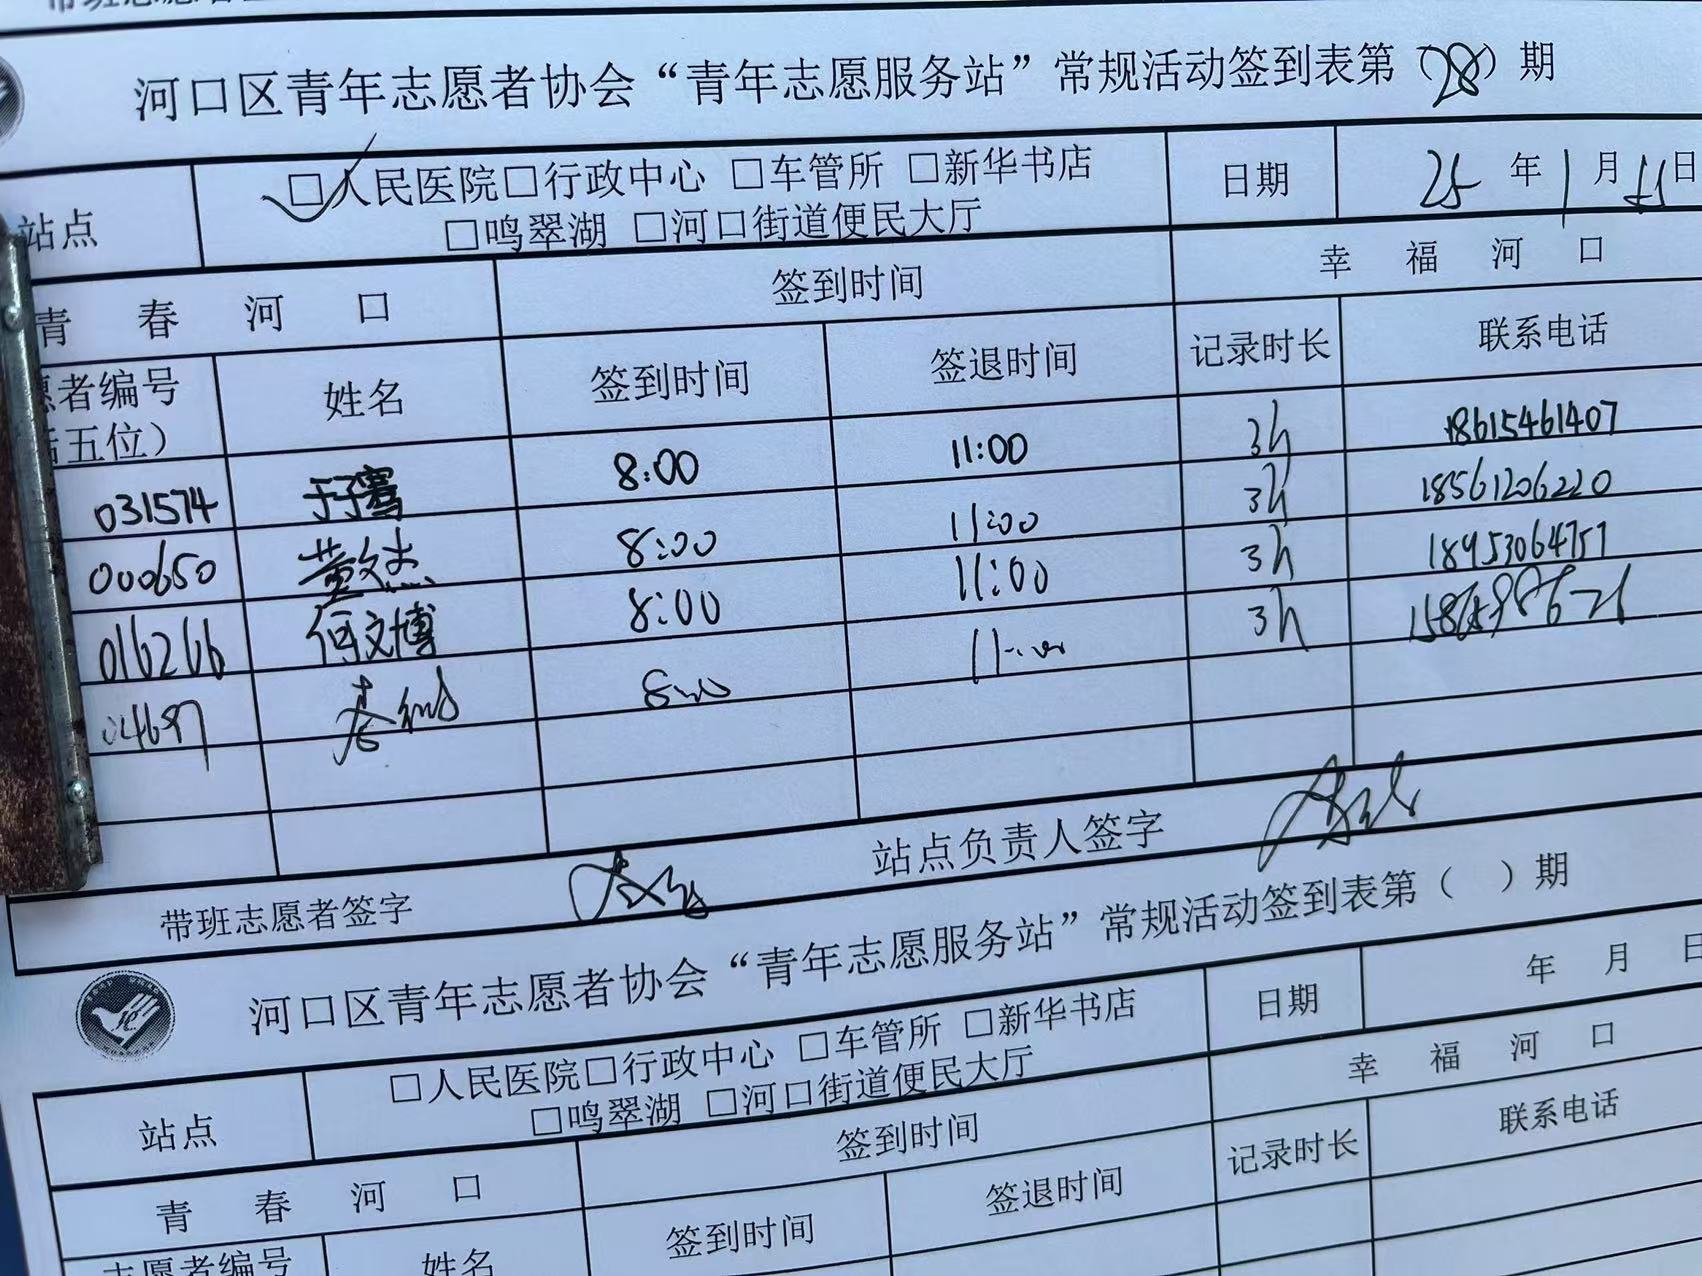 河口区青年志愿者协会“青年志愿服务站”常规活动签到表第（28）期
站点
□人民医院□行政中心 □车管所 □新华书店
□鸣翠湖 □河口街道便民大厅
日期
25 年 1 月 日
青 春 河 口
签到时间
幸 福 河 口
愿者编号
后五位）
姓名
签到时间
签退时间
记录时长
联系电话
031574 于子骞 8:00 11:00 3h 18615461407
000650 董文杰 8:00 11:00 3h 18561206220
016266 何文博 8:00 11:00 3h 18953064757
8:00 11:00 3h
带班志愿者签字
站点负责人签字
河口区青年志愿者协会“青年志愿服务站”常规活动签到表第（ ）期
站点
□人民医院□行政中心 □车管所 □新华书店
□鸣翠湖 □河口街道便民大厅
日期
年 月 日
青 春 河 口
签到时间
幸 福 河 口
志愿者编号
姓名
签到时间
签退时间
记录时长
联系电话